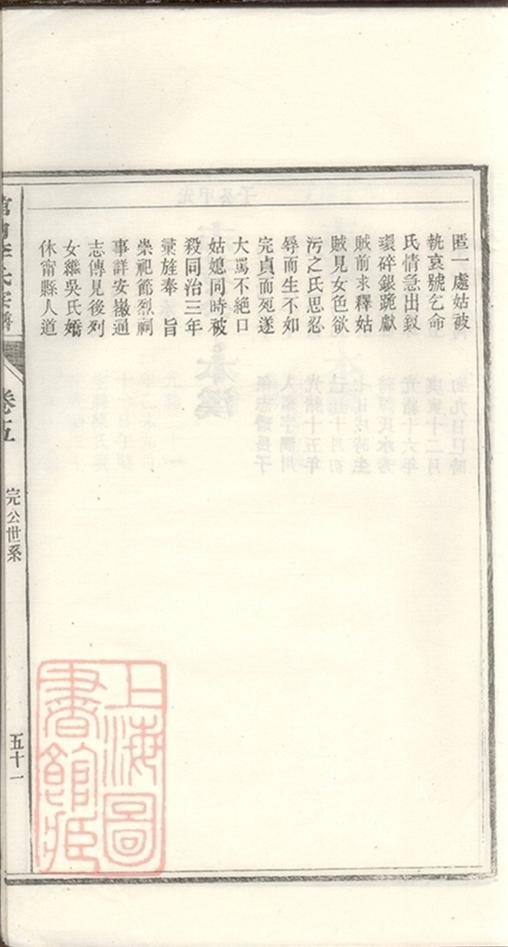 匿一處姑被
執哀號乞命
氏情急出釵
環碎銀跪獻
賊前求釋姑
賊見女色欲
污之氏思忍
辱而生不如
完貞而死遂
大罵不絕口
姑媳同時被
殺同治三年
彙旌奉 旨
崇祀節烈祠
事詳安徽通
志傳見後列
女繼吳氏嬌
休甯縣人道
李氏宗譜
卷五
完公世系
五十一
上海圖
書館藏